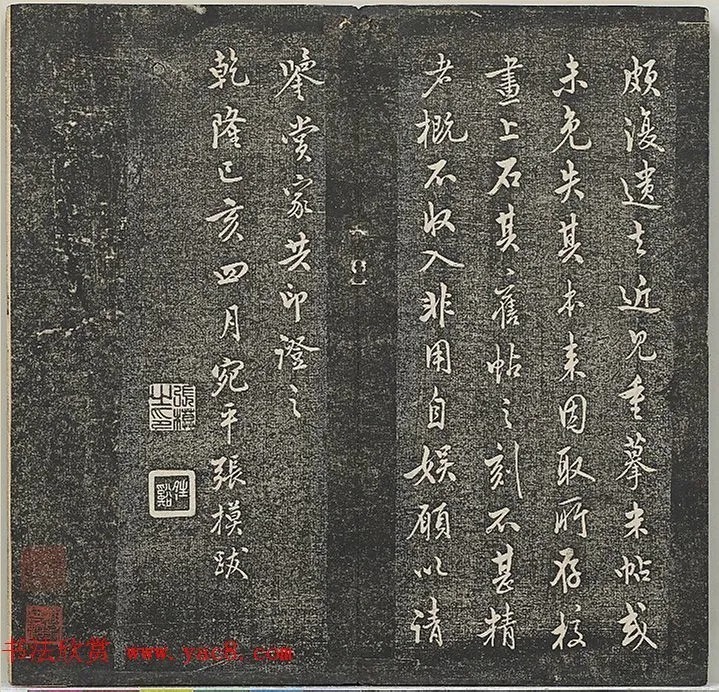 頗復遺去近見重摹米帖或
未免失其本来因取所存校
畫上石其〻舊帖之刻不甚精
者概不收入非用自娱願以請
鑒赏家共印證之
乾隆己亥四月宛平張模跋
張模之印
书法欣赏 www.yac8.com